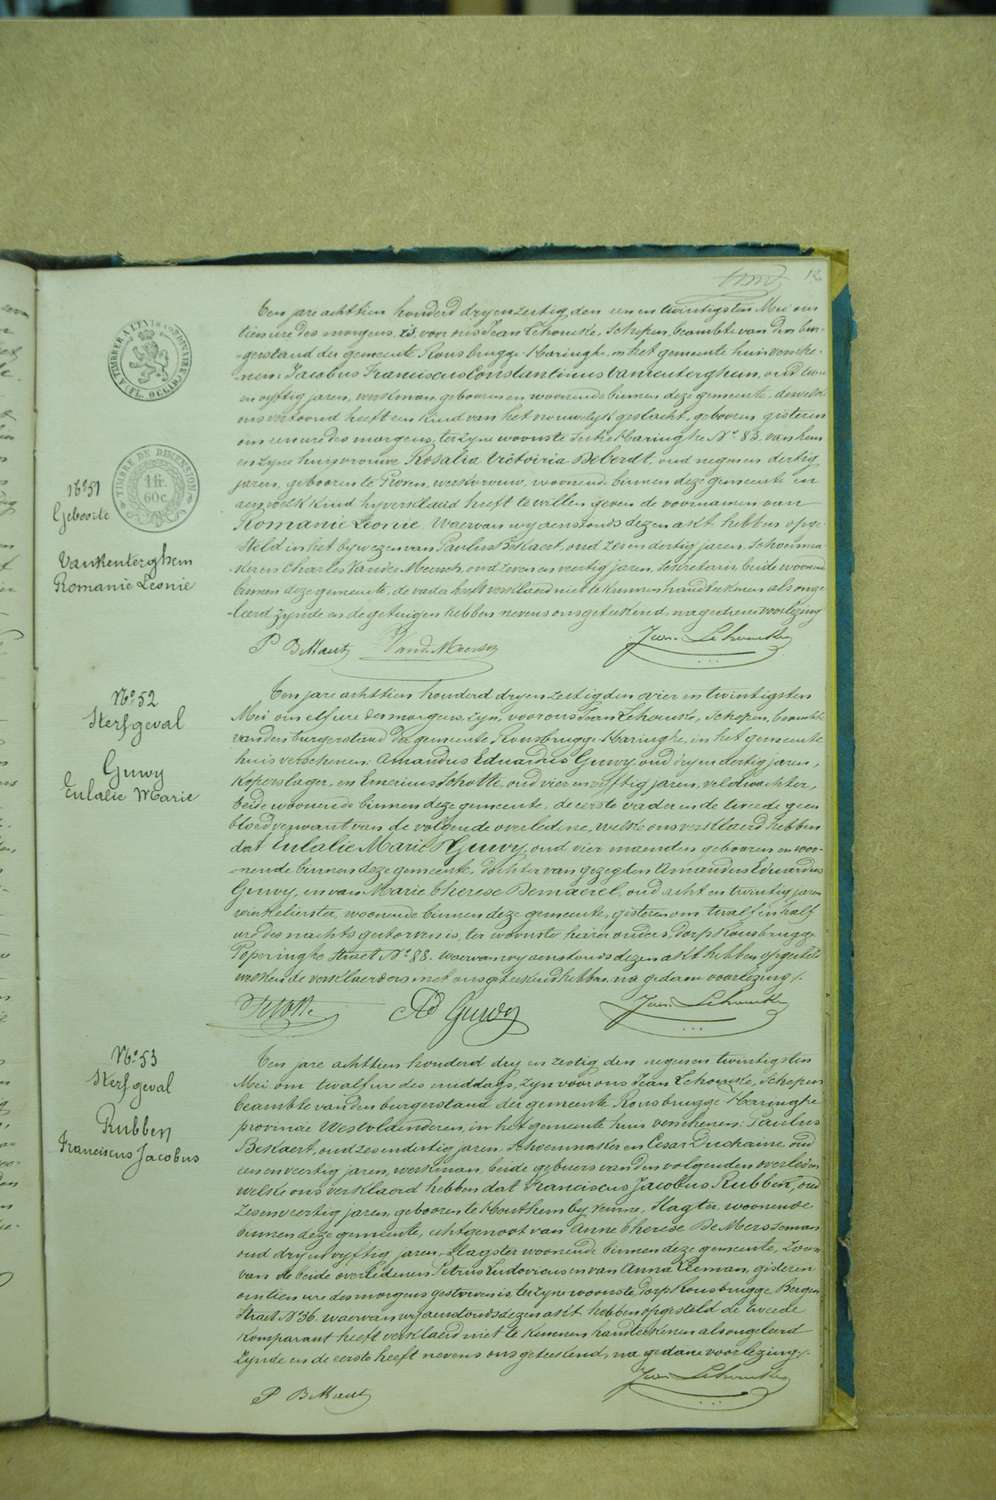 12
TIMBRE DE DIMENSION
1 fr.
60 c.
No 51
Geboorte
Vankenterghem
Romanie Leonie
Ten jare achttien honderd dry en zestig, den een en twintigsten Mei om
tien ure des morgens, is, voor ons Jean Lehoucke, Schepen, beambte van den bur-
-gerstand der gemeente Rousbrugge-Haringhe, in het gemeente huis versche-
-nen: Jacobus Franciscus Constantinus Vankenterghem, oud twee
en vyftig jaren, werkman, geboren en woonende binnen deze gemeente, dewelke
ons vertoond heeft een kind van het vrouwelyk geslacht, geboren gisteren
om een ure des morgens, ter zyne woonste Sectie Haringhe No 83. van hem
en zyne huisvrouwe Rosalia Victoria Deberdt, oud negen en dertig
jaren, geboren te Proven, werkvrouw, woonende binnen deze gemeente en
aen welk kind hy verklaerd heeft te willen geven de voornamen van
Romanie Leonie. Waervan wy aenstonds dezen akt hebben opge-
steld in het bywezen van Paulus Bekaert, oud zes en dertig jaren, Schoenma-
ker en Charles Vande Meersch, oud zeven en veertig jaren, Secretaris, beide woonende
binnen deze gemeente, de vader heeft verklaerd niet te kunnen handteekenen als onge-
leerd zynde en de getuigen hebben nevens ons geteekend na gedaene voorlezing
P BKaert Vande Meersch Jean Lehoucke
No 52
Sterfgeval
Guwy
Eulalie Marie
Ten jare achttien honderd dry en zestig den vier en twintigsten
Mei om elf ure des morgens, zyn, voor ons Jean Lehoucke, Schepen, beambte
van den burgerstand der gemeente Rousbrugge-Haringhe, in het gemeente
huis verschenen: Amandus Eduardus Guwy, oud dry en dertig jaren,
koperslager, en Emerius Scholle, oud vier en vyftig jaren, veldwachter,
beide woonende binnen deze gemeente, de eerste vader en de tweede geen
bloedverwant van de volgende overledene, welke ons verklaerd hebben
dat Eulalie Marie Guwy, oud vier maenden geboren en woo-
-nende binnen deze gemeente, dochter van gezegden Amandus Eduardus
Guwy, en van Marie Therese Demaerel, oud acht en twintig jaren
winkelierster, woonende binnen deze gemeente, gisteren om twalf en half
ure des nachts gestorven is, ter woonste harer ouders, Dorp Rousbrugge
Poperinghe Straet No 88. waervan wy aenstonds dezen akt hebben opgesteld
welken de verklaerders met ons geteekend hebben, na gedaene voorlezing/.
Ad Guwy Jean Lehoucke
No 53
Sterfgeval
Rubben
Franciscus Jacobus
Ten jare achttien honderd dry en zestig den negen en twintigsten
Mei om twalf ure des middags, zyn voor ons Jean Lehoucke, Schepen
beambte van den burgerstand der gemeente Rousbrugge-Haringhe
provincie Westvlaanderen, in het gemeente huis verschenen: Paulus
Bekaert, oud zes en dertig jaren, Schoenmaker en Cesar Duchaine oud
een en veertig jaren, werkman, beide gebuers van den volgenden overleden
welke ons verklaerd hebben dat Franciscus Jacobus Rubben, oud
zes en veertig jaren, geboren te Houthem by Veurne, Slagter, woonende
binnen deze gemeente, echtgenoot van Anne Therese De Mersseman
oud dry en vyftig jaren, Slagster woonende binnen deze gemeente, Zoon
van de beide overledenen Petrus Ludovicus en van Anna Leeman, gisteren
om tien ure des morgens gestorven is, ter zyne woonste Dorp Rousbrugge Bergen
Straet No 36. waervan wy aenstonds dezen akt hebben opgesteld de tweede
komparant heeft verklaerd niet te kunnen handteekenen als ongeleerd
zynde en de eerste heeft nevens ons geteekend, na gedane voorlezing/.
P BKaert Jean Lehoucke